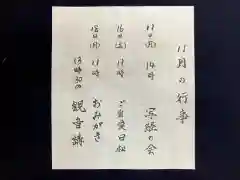 11月の行事
11日(月) 14時 写経の会
16日(土) 11時 ご真言日和
18日(月) 11時 おみがき
13時30分 観音講